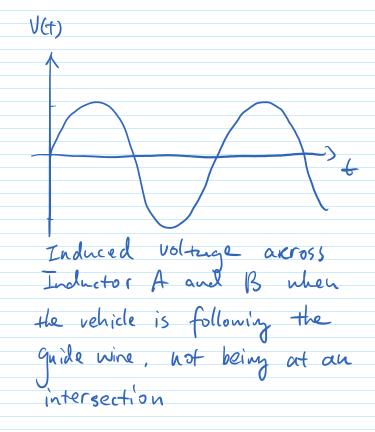 V(t)
t
Induced voltage across
Inductor A and B when
the vehicle is following the
guide wire, not being at an
intersection